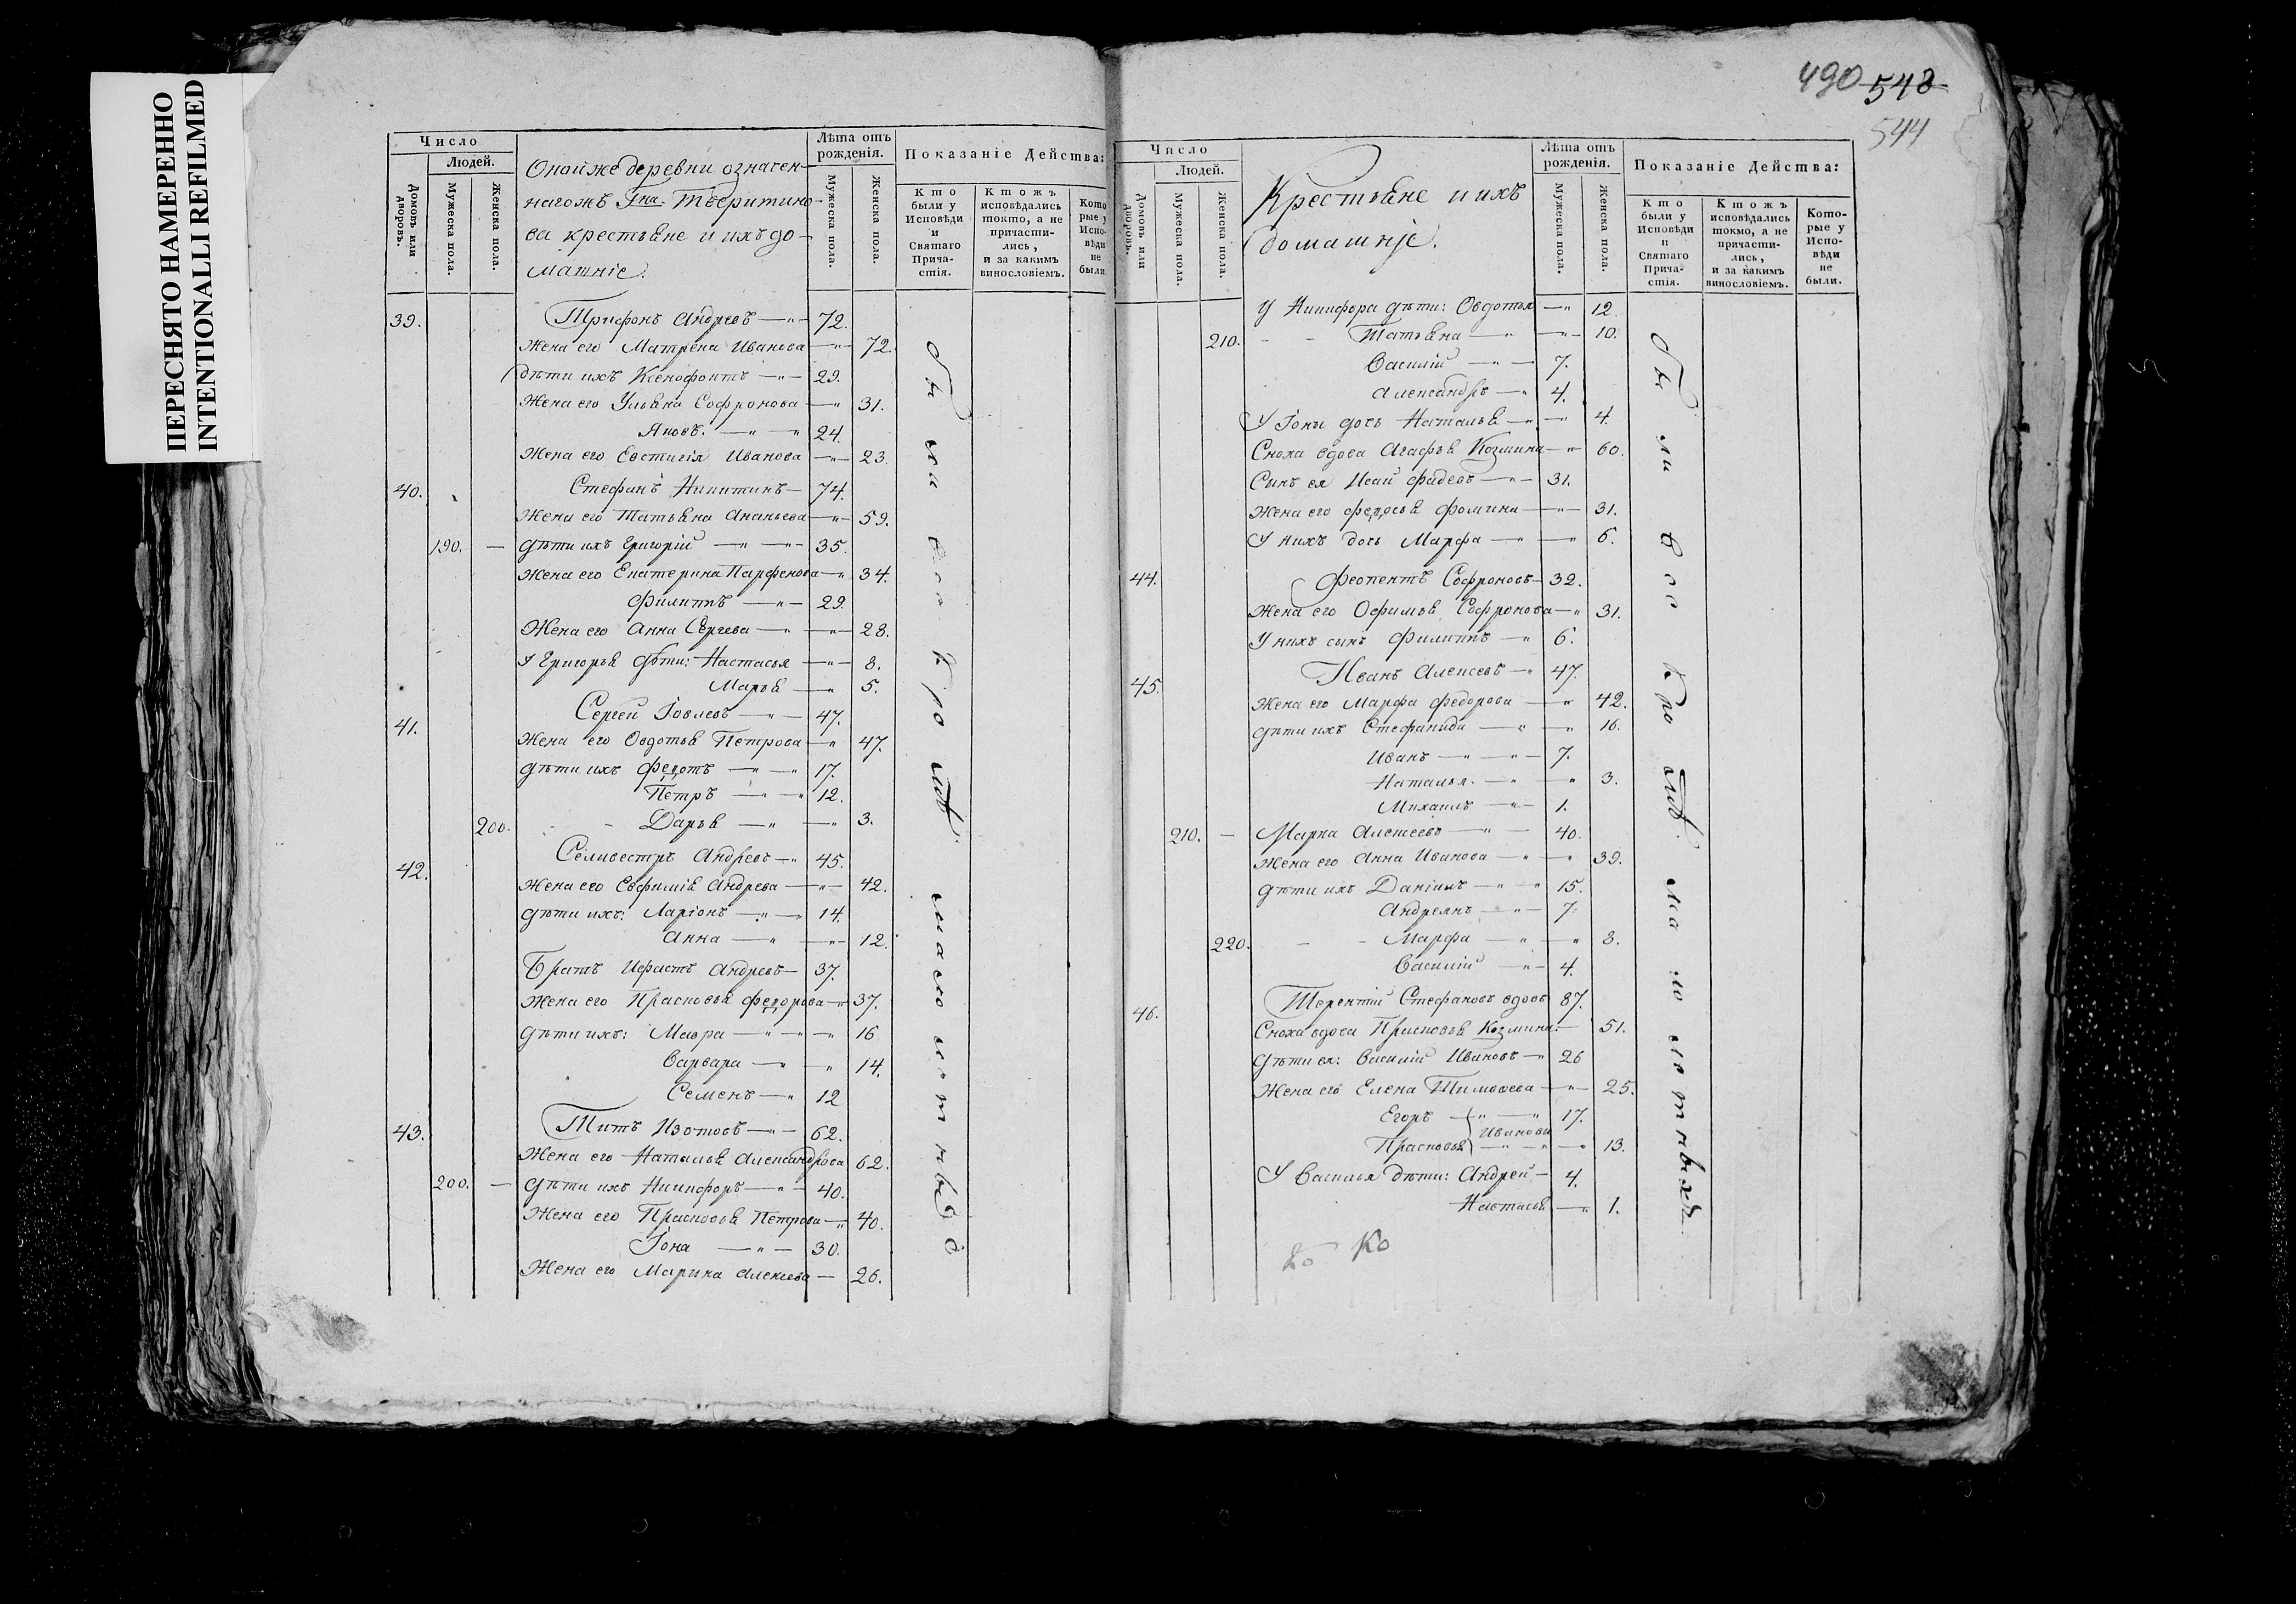 ПЕРЕСНЯТО НАМЕРЕННО
INTENTIONALLI REFILMED
Число
Людей.
Домовъ или дворовъ.
Мужеска пола.
Женска пола.
Оной же деревни означен-
нагожъ Гна. Тверитино-
ва крестьяне и ихъ до-
машніе.
Лѣта отъ рожденія.
Мужеска пола.
Женска пола.
Показаніе Действа:
Кто были у Исповѣди и Святаго Прича-стія.
Ктожъ исповѣдались токмо, а не причасти-лись, и за какимъ винословіемъ.
Кото рые у Испо-вѣди не были.
39. Трифонъ Андреевъ — 72.
Жена его Матрена Иванова — 72.
Дѣти ихъ Ксенофонтъ — 29.
Жена его Ульяна Софронова — 31.
Яковъ. — 24.
Жена его Евстигія Иванова — 23.
40. Стефанъ Никитинъ — 74.
Жена его Татьяна Ананьева — 59.
190. — Дѣти ихъ Григорій — 35.
Жена его Екатерина Парфенова — 34.
Филиппъ — 29.
Жена его Анна Сергева — 28.
У Григорья дѣти: Настасья — 8.
Марья — 5.
41. Сергей Іовлевъ — 47.
Жена его Овдотья Петрова — 47.
Дѣти ихъ Федотъ — 17.
Петръ — 12.
200. - - Дарья — 3.
42. Селивестръ Андреевъ — 45.
Жена его Евфимія Андрева — 42.
Дѣти ихъ: Ларіонъ — 14.
Анна — 12.
Братъ Ифастъ Андревъ — 37.
Жена его Прасковья Федорова — 37.
Дѣти ихъ: Мавра — 16
Варвара — 14.
Семенъ — 12
43. Титъ Изотовъ — 62.
Жена его Наталья Александрова 62.
200. — Дѣти ихъ Никифоръ — 40.
Жена его Прасковья Петрова — 40.
Іона — 30.
Жена его Марина Алексева — 26.
были все кромѣ малолѣтныхъ
490 548
544
Число
Людей.
Домовъ или дворовъ.
Мужеска пола.
Женска пола.
Крестьяне и ихъ
домашніе.
Лѣта отъ рожденія.
Мужеска пола.
Женска пола.
Показаніе Действа:
Кто были у Исповѣди и Святаго Прича-стія.
Ктожъ исповѣдались токмо, а не причасти-лись, и за какимъ винословіемъ.
Кото-рые у Испо-вѣди не были.
У Никифора дѣти: Овдотья — 12.
210. - - Татьяна — 10.
Василій — 7.
Александръ — 4.
У Іоны дочь Наталья — 4.
Сноха вдова Агафья Козмина — 60.
Сынъ ея Исай Фадеевъ — 31.
Жена его Федосья Фомина — 31.
У нихъ дочь Марфа — 6.
44. Феопентъ Софроновъ — 32.
Жена его Офимья Софронова — 31.
У нихъ сынъ Филиппъ — 6.
45. Иванъ Алексеевъ — 47.
Жена его Марфа Федорова — 42.
Дѣти ихъ Стефанида — 16.
Иванъ — 7.
Наталья. — 3.
Михаилъ — 1.
210. — Марка Алексеевъ — 40.
Жена его Анна Иванова — 39.
Дѣти ихъ Даніилъ — 15.
Андреянъ — 7.
220. - - Марфа — 8.
Василій — 4.
46. Терентій Стефановъ вдовъ 87.
Сноха вдова Прасковья Козмина. — 51.
Дѣти ея: Василій Ивановъ — 26
Жена его Елена Тимофеева — 25.
Егоръ — 17.
Ивановы
Прасковья — 13.
У Василья дѣти: Андрей — 4.
Настасья — 1.
были все кромѣ малолѣтныхъ.
Ко